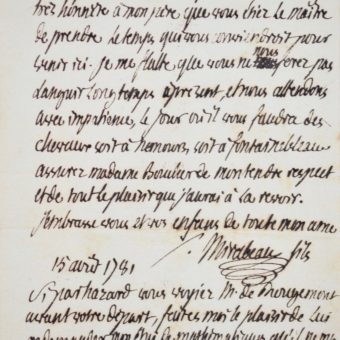 très honnête à mon père que vous étiez le maître
de prendre le temps qui vous conviendroit pour
venir ici. je me flatte que vous ne nous ferez pas
languir longtemps à présent, et nous attendons
avec impatience, le jour où il vous faudra des
chevaux soit à nemours, soit à fontainebleau
assurez madame Boucher de mon tendre respect
et de tout le plaisir que j'aurai à la revoir.
j'embrasse vous et vos enfans de toute mon ame
Mirabeau fils
15 avril 1781
Si par hazard vous voyiez Mr. de Brugnement
avant votre départ, faites moi le plaisir de lui
redemander mon